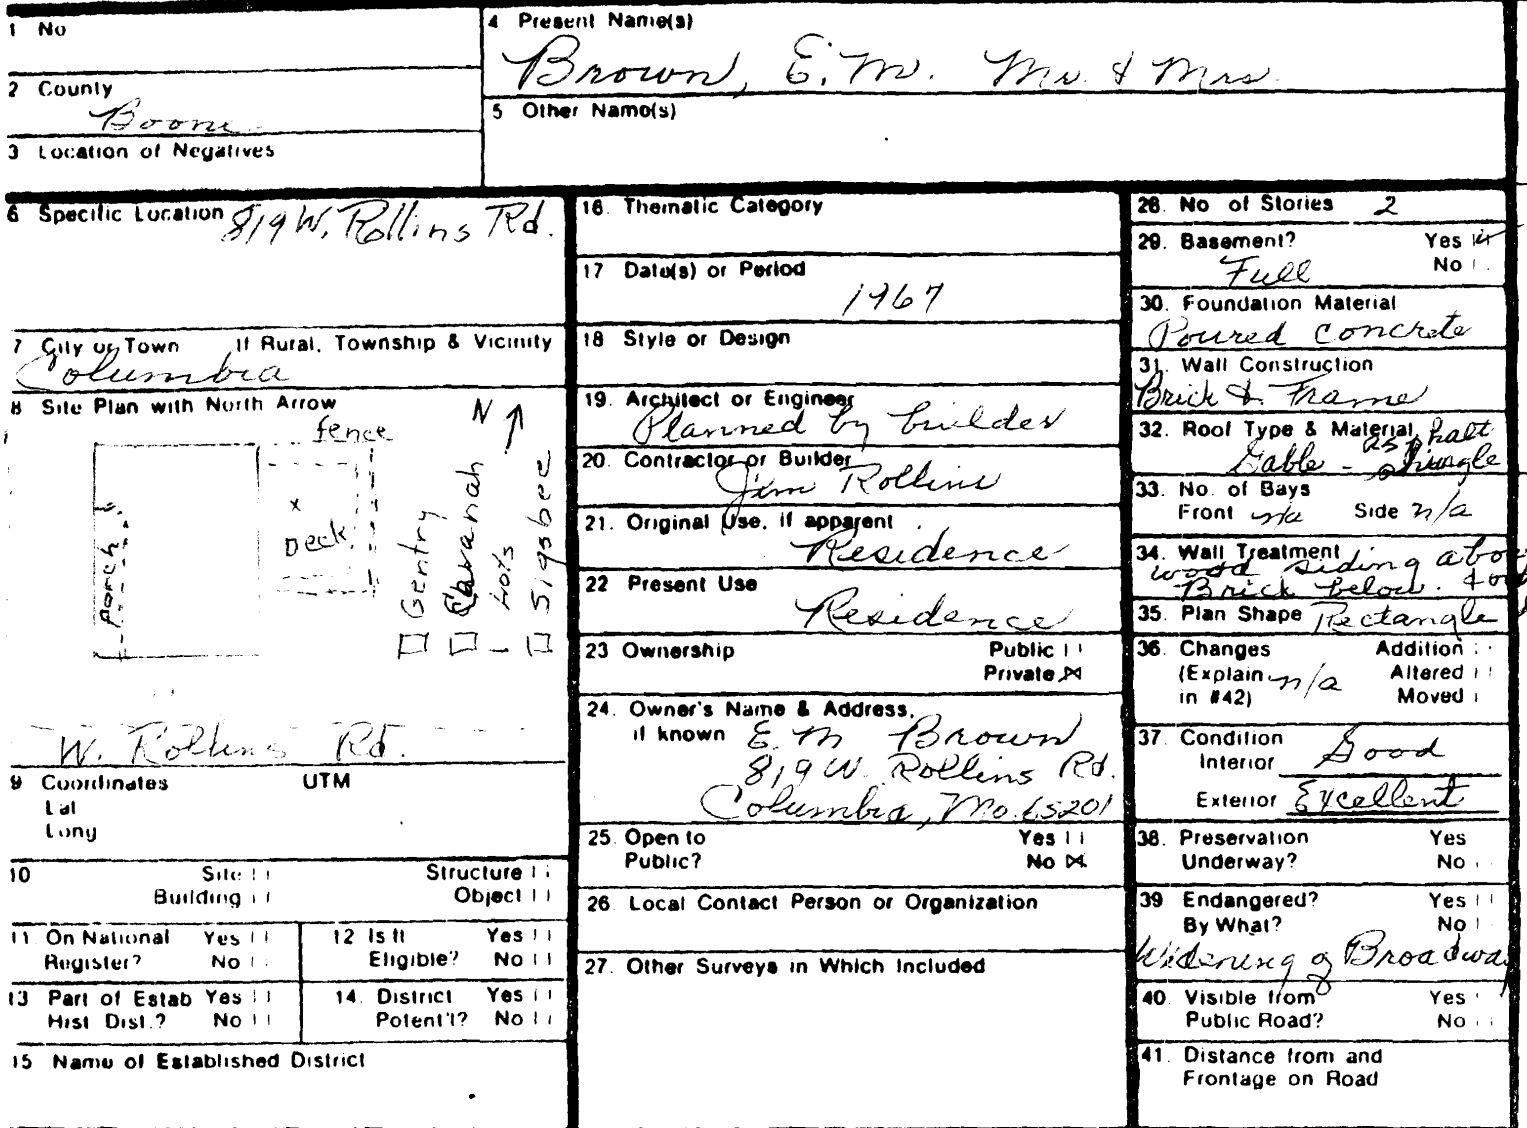 1 No
2 County
Boone
3 Location of Negatives
4 Present Name(s)
Brown, E.M. Mr. & Mrs.
5 Other Name(s)
6 Specific Location 819 W. Rollins Rd.
7 City or Town If Rural, Township & Vicinity
Columbia
8 Site Plan with North Arrow
N
fence
x
Deck
porch
Gentry
Lots
Sigsbee
W. Rollins Rd.
9 Coordinates UTM
Lat
Long
10 Site
Structure
Building
Object
11 On National Register? Yes No
12 Is It Eligible? Yes No
13 Part of Estab Hist Dist.? Yes No
14. District Potent'l? Yes No
15 Name of Established District
16. Thematic Category
17 Date(s) or Period
1967
18 Style or Design
19. Architect or Engineer
Planned by builder
20. Contractor or Builder
Jim Rollins
21. Original Use, if apparent
Residence
22 Present Use
Residence
23 Ownership Public
Private
24. Owner's Name & Address,
if known E. M Brown
819 W. Rollins Rd.
Columbia, Mo. 65201
25. Open to Yes
Public? No
26. Local Contact Person or Organization
27. Other Surveys in Which Included
28. No of Stories 2
29. Basement? Yes
Full No
30. Foundation Material
Poured concrete
31. Wall Construction
Brick & Frame
32. Roof Type & Material asphalt
Gable - shingle
33. No. of Bays
Front n/a Side n/a
34. Wall Treatment
wood siding
Brick below.
35. Plan Shape Rectangle
36. Changes Addition
(Explain n/a Altered
in #42) Moved
37. Condition
Interior Good
Exterior Excellent
38. Preservation Yes
Underway? No
39 Endangered? Yes
By What? No
Widening of
40. Visible from Yes
Public Road? No
41. Distance from and
Frontage on Road